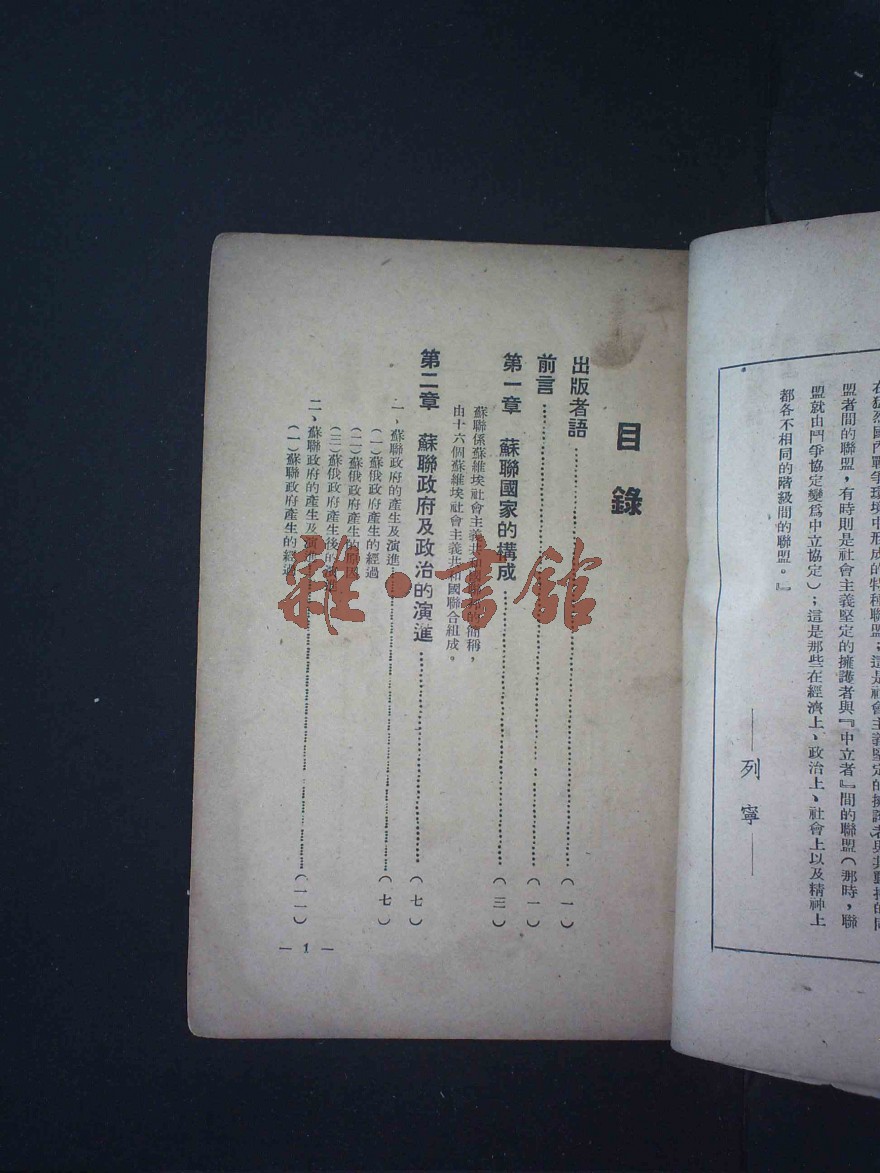 在猛然國內戰爭環境中形成的特種聯盟；這是社會主義堅定的擁護者與其動搖的同
盟者間的聯盟，有時則是社會主義堅定的擁護者與『中立者』間的聯盟（那時，聯
盟就由鬥爭協定變爲中立協定）；這是那些在經濟上、政治上、社會上以及精神上
都各不相同的階級間的聯盟。』
——列寧——
目錄
出版者語……（一）
前言……（一）
第一章 蘇聯國家的構成……（三）
蘇聯係蘇維埃社會主義共和國聯邦的簡稱，
由十六個蘇維埃社會主義共和國聯合組成。
第二章 蘇聯政府及政治的演進……（七）
一、蘇聯政府的產生及演進……（七）
（一）蘇俄政府產生的經過
（二）蘇俄政府產生的
（三）蘇俄政府產生後的演進
二、蘇聯政府的產生及演進……（一一）
（一）蘇聯政府產生的經過
— 1 —
雜·書館